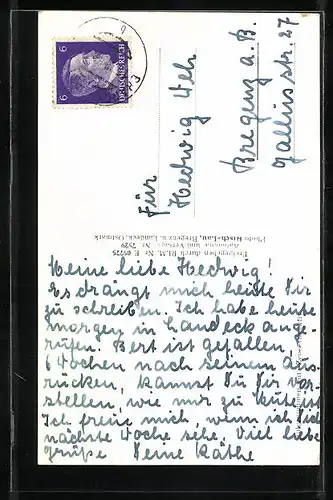 6
DEUTSCHES REICH
6
Für
Hedwig
Bregenz a. B.
Gallusstr. 27
Freigegeben durch RLM. Nr. E
Aufnahme und Verlag: Nr. 7529
Photo Risch-Lau, Bregenz u. Landeck, Ostmark
Meine liebe Hedwig!
Es drängt mich heute Dir
zu schreiben. Ich habe heute
morgen in Landeck ange-
rufen. Bert ist gefallen
6 Wochen nach seinem Aus-
rücken, kannst Du Dir vor-
stellen, wie mir zu Mute ist
Ich freue mich, wenn ich Dich
nächste Woche sehe. Viel liebe
Grüße Deine Käthe